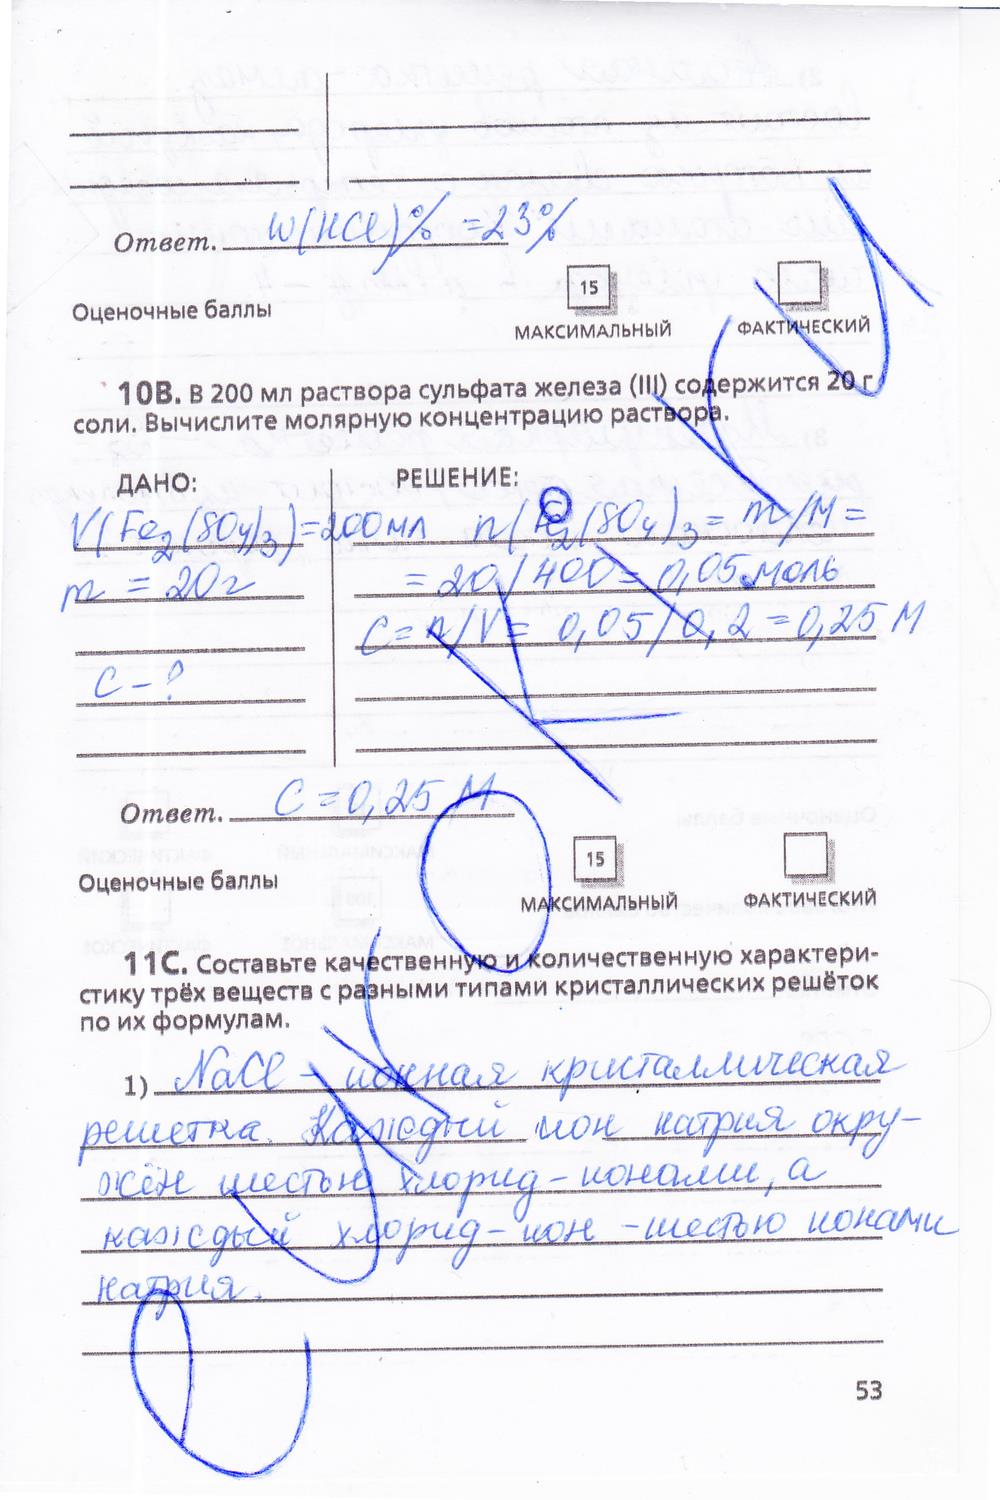 Ответ. W(HCl)% = 23%
15
Оценочные баллы
МАКСИМАЛЬНЫЙ ФАКТИЧЕСКИЙ
10В. В 200 мл раствора сульфата железа (III) содержится 20 г
соли. Вычислите молярную концентрацию раствора.
ДАНО: РЕШЕНИЕ:
V(Fe2(SO4)3)=200мл n(Fe2(SO4)3 = m/M =
m = 20г = 20/400 = 0,05 моль
C = n/V = 0,05/0,2 = 0,25 М
С - ?
Ответ. С = 0,25 М
15
Оценочные баллы
МАКСИМАЛЬНЫЙ ФАКТИЧЕСКИЙ
11С. Составьте качественную и количественную характери-
стику трёх веществ с разными типами кристаллических решёток
по их формулам.
1) NaCl - ионная кристаллическая
решетка. Каждый ион натрия окру-
жён шестью хлорид-ионами, а
каждый хлорид-ион - шестью ионами
натрия.
53